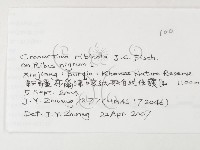 100
Cronartium ribicola J.C. Fisch.
on Ribes nigrum L.
Xinjiang: Burqin: Kanas Nature Reserve
新疆布尔津喀纳斯自然保护区
5 Sept. 2004
J.-Y. Zhuang
Det. J.-Y. Zhuang 22 Apr 2007